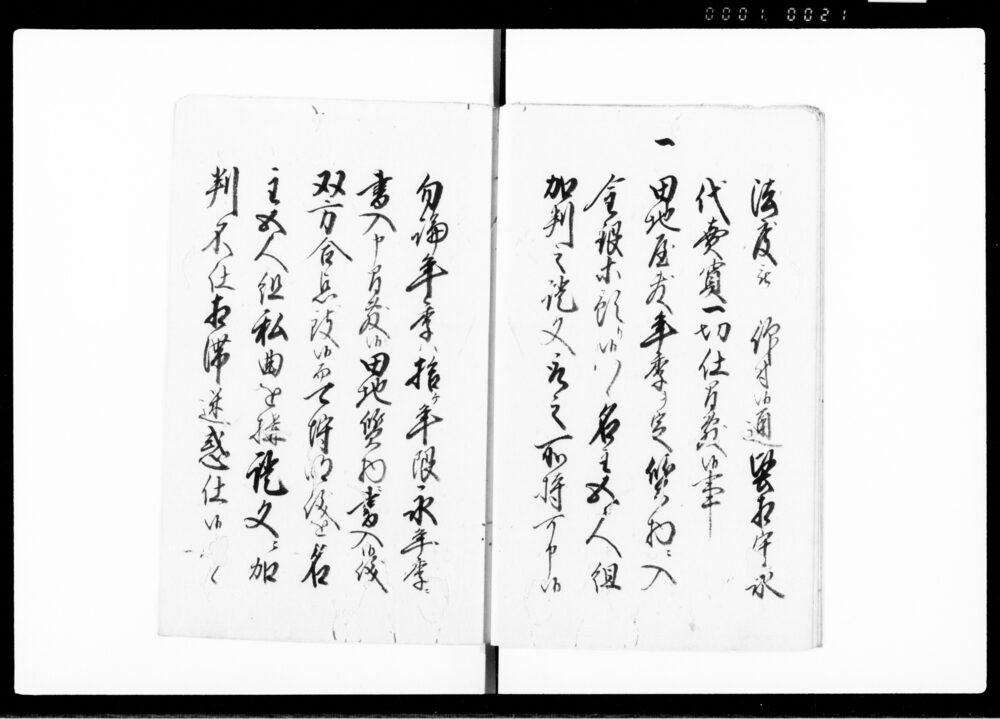 0001. 0021
法度被 仰付候通堅相守永
代売買一切仕間敷候事
一
田地屋敷年季ヲ定質物ニ入
金銀本預り候ハヽ名主五人組
加判之証文取之所持可申候
勿論年季ハ拾ヶ年限永年季ニ
書入申間敷候田地質物書入候儀
双方合点証候而可埒明儀を名
主五人組私曲を構証文ニ加
判不仕相滞迷惑仕候